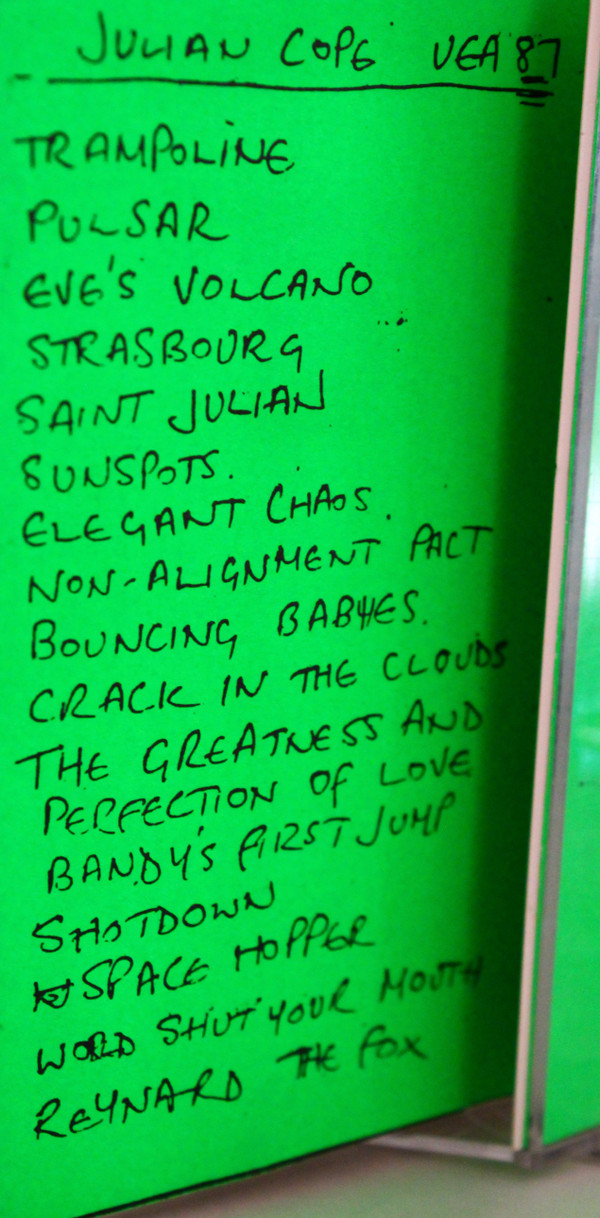 JULIAN COPE UEA '87
TRAMPOLINE
PULSAR
EVE'S VOLCANO
STRASBOURG
SAINT JULIAN
SUNSPOTS.
ELEGANT CHAOS.
NON-ALIGNMENT PACT
BOUNCING BABIES.
CRACK IN THE CLOUDS
THE GREATNESS AND
PERFECTION OF LOVE
BANDY'S FIRST JUMP
SHOTDOWN
SPACE HOPPER
WORLD SHUT YOUR MOUTH
REYNARD THE FOX